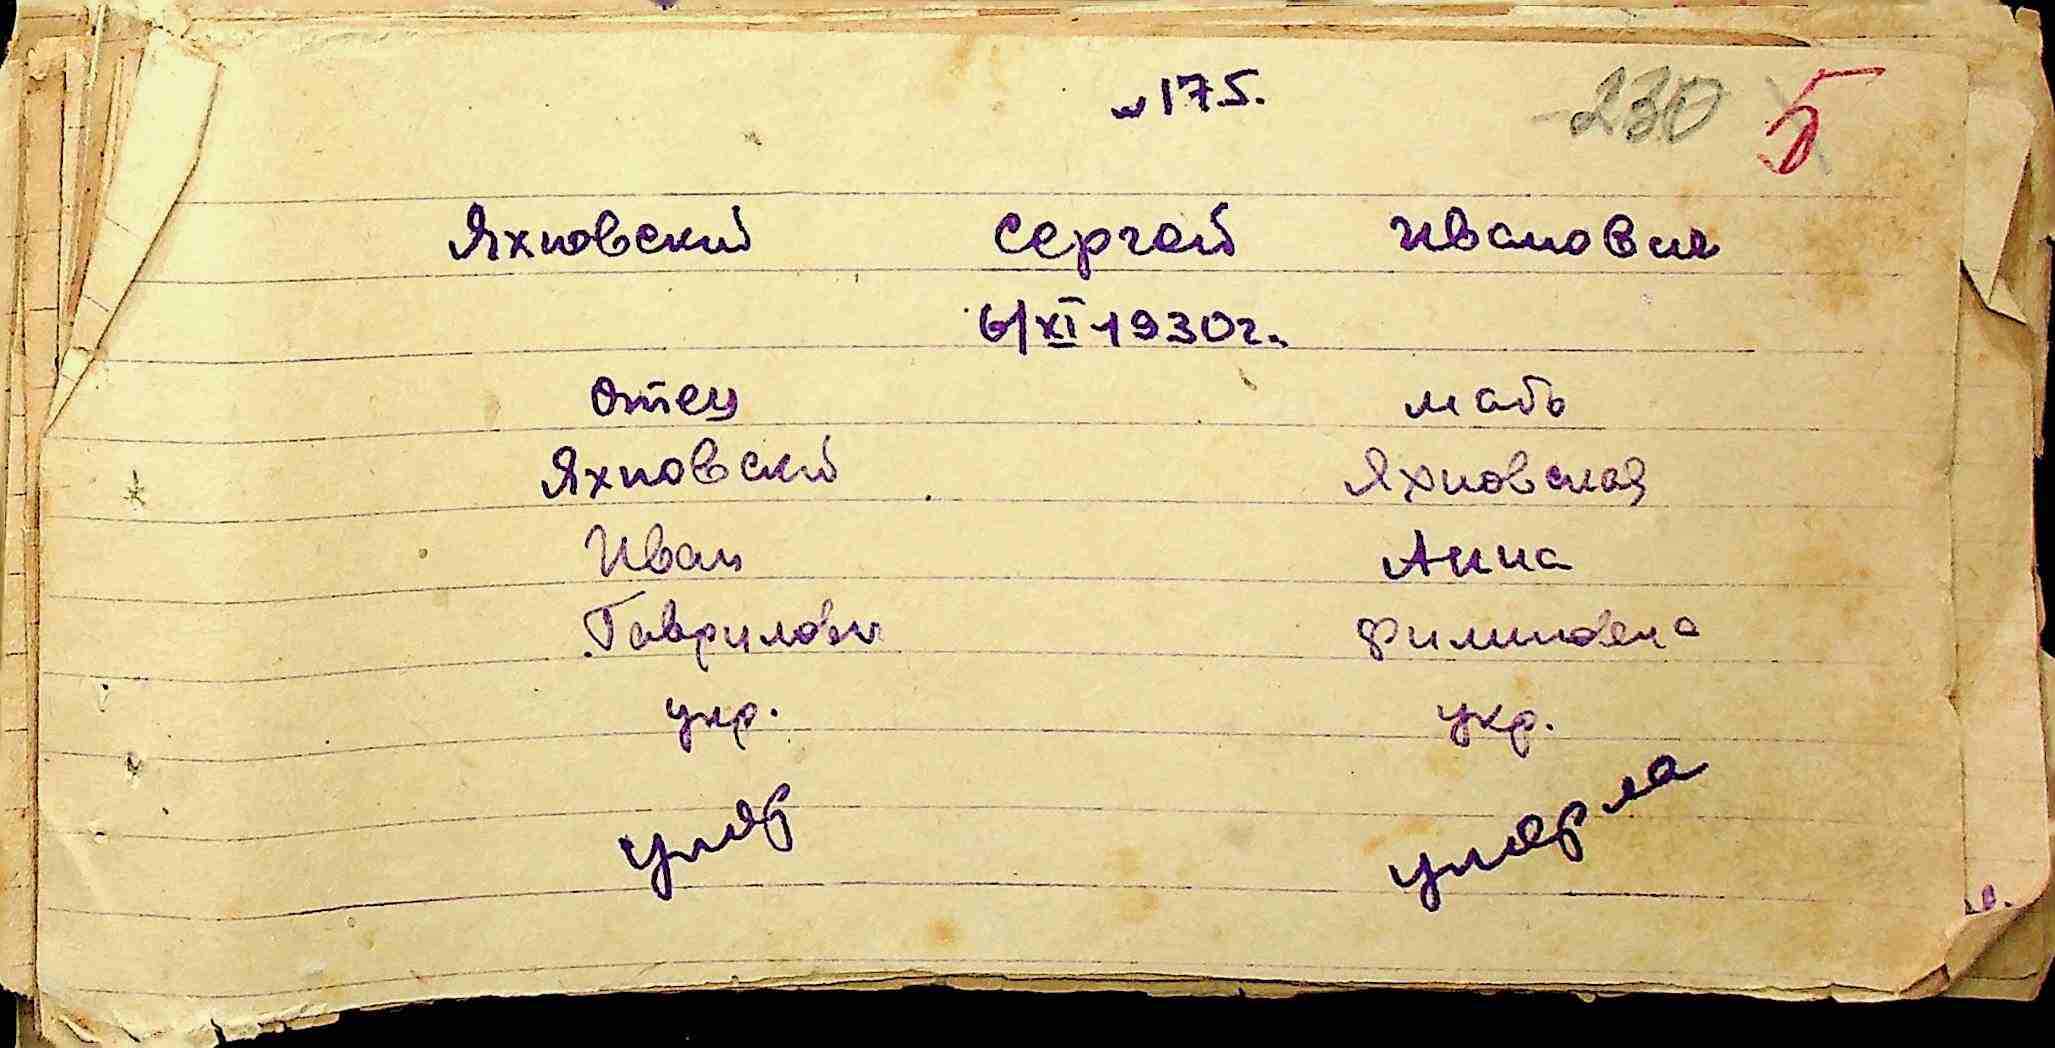 № 175. 230 5
Яхновский Сергей Иванович
6/XI 1930г.
Отец мать
Яхновский Яхновская
Иван Анна
Гаврилович Филиповна
укр. укр.
умер умерла